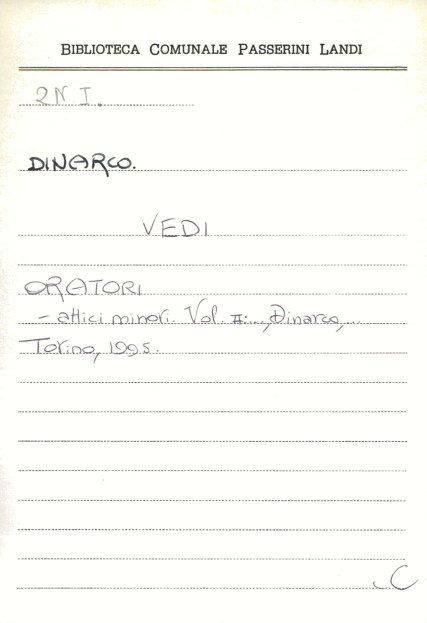 BIBLIOTECA COMUNALE PASSERINI LANDI
2N I.
DINARCO.
VEDI
ORATORI
- attici minori. Vol. II: ..., Dinarco, ...
Torino, 1995.
C